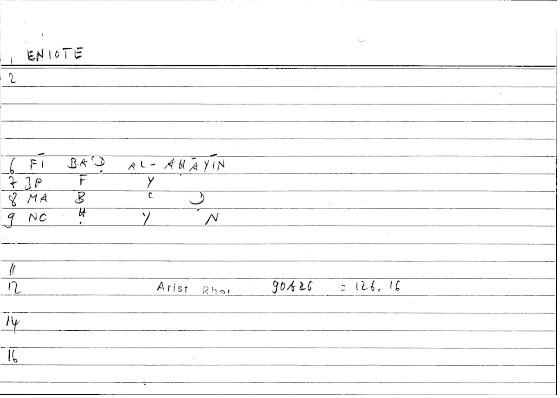 1 ENIOTE
2
6 FĪ BAʿḌ AL-AḤĀYĪN
7 3P F Y
8 MA B ʿ Ḍ
9 NC Ḥ Y N
11
12 Arist Rhet 90b26 = 126.16
14
16